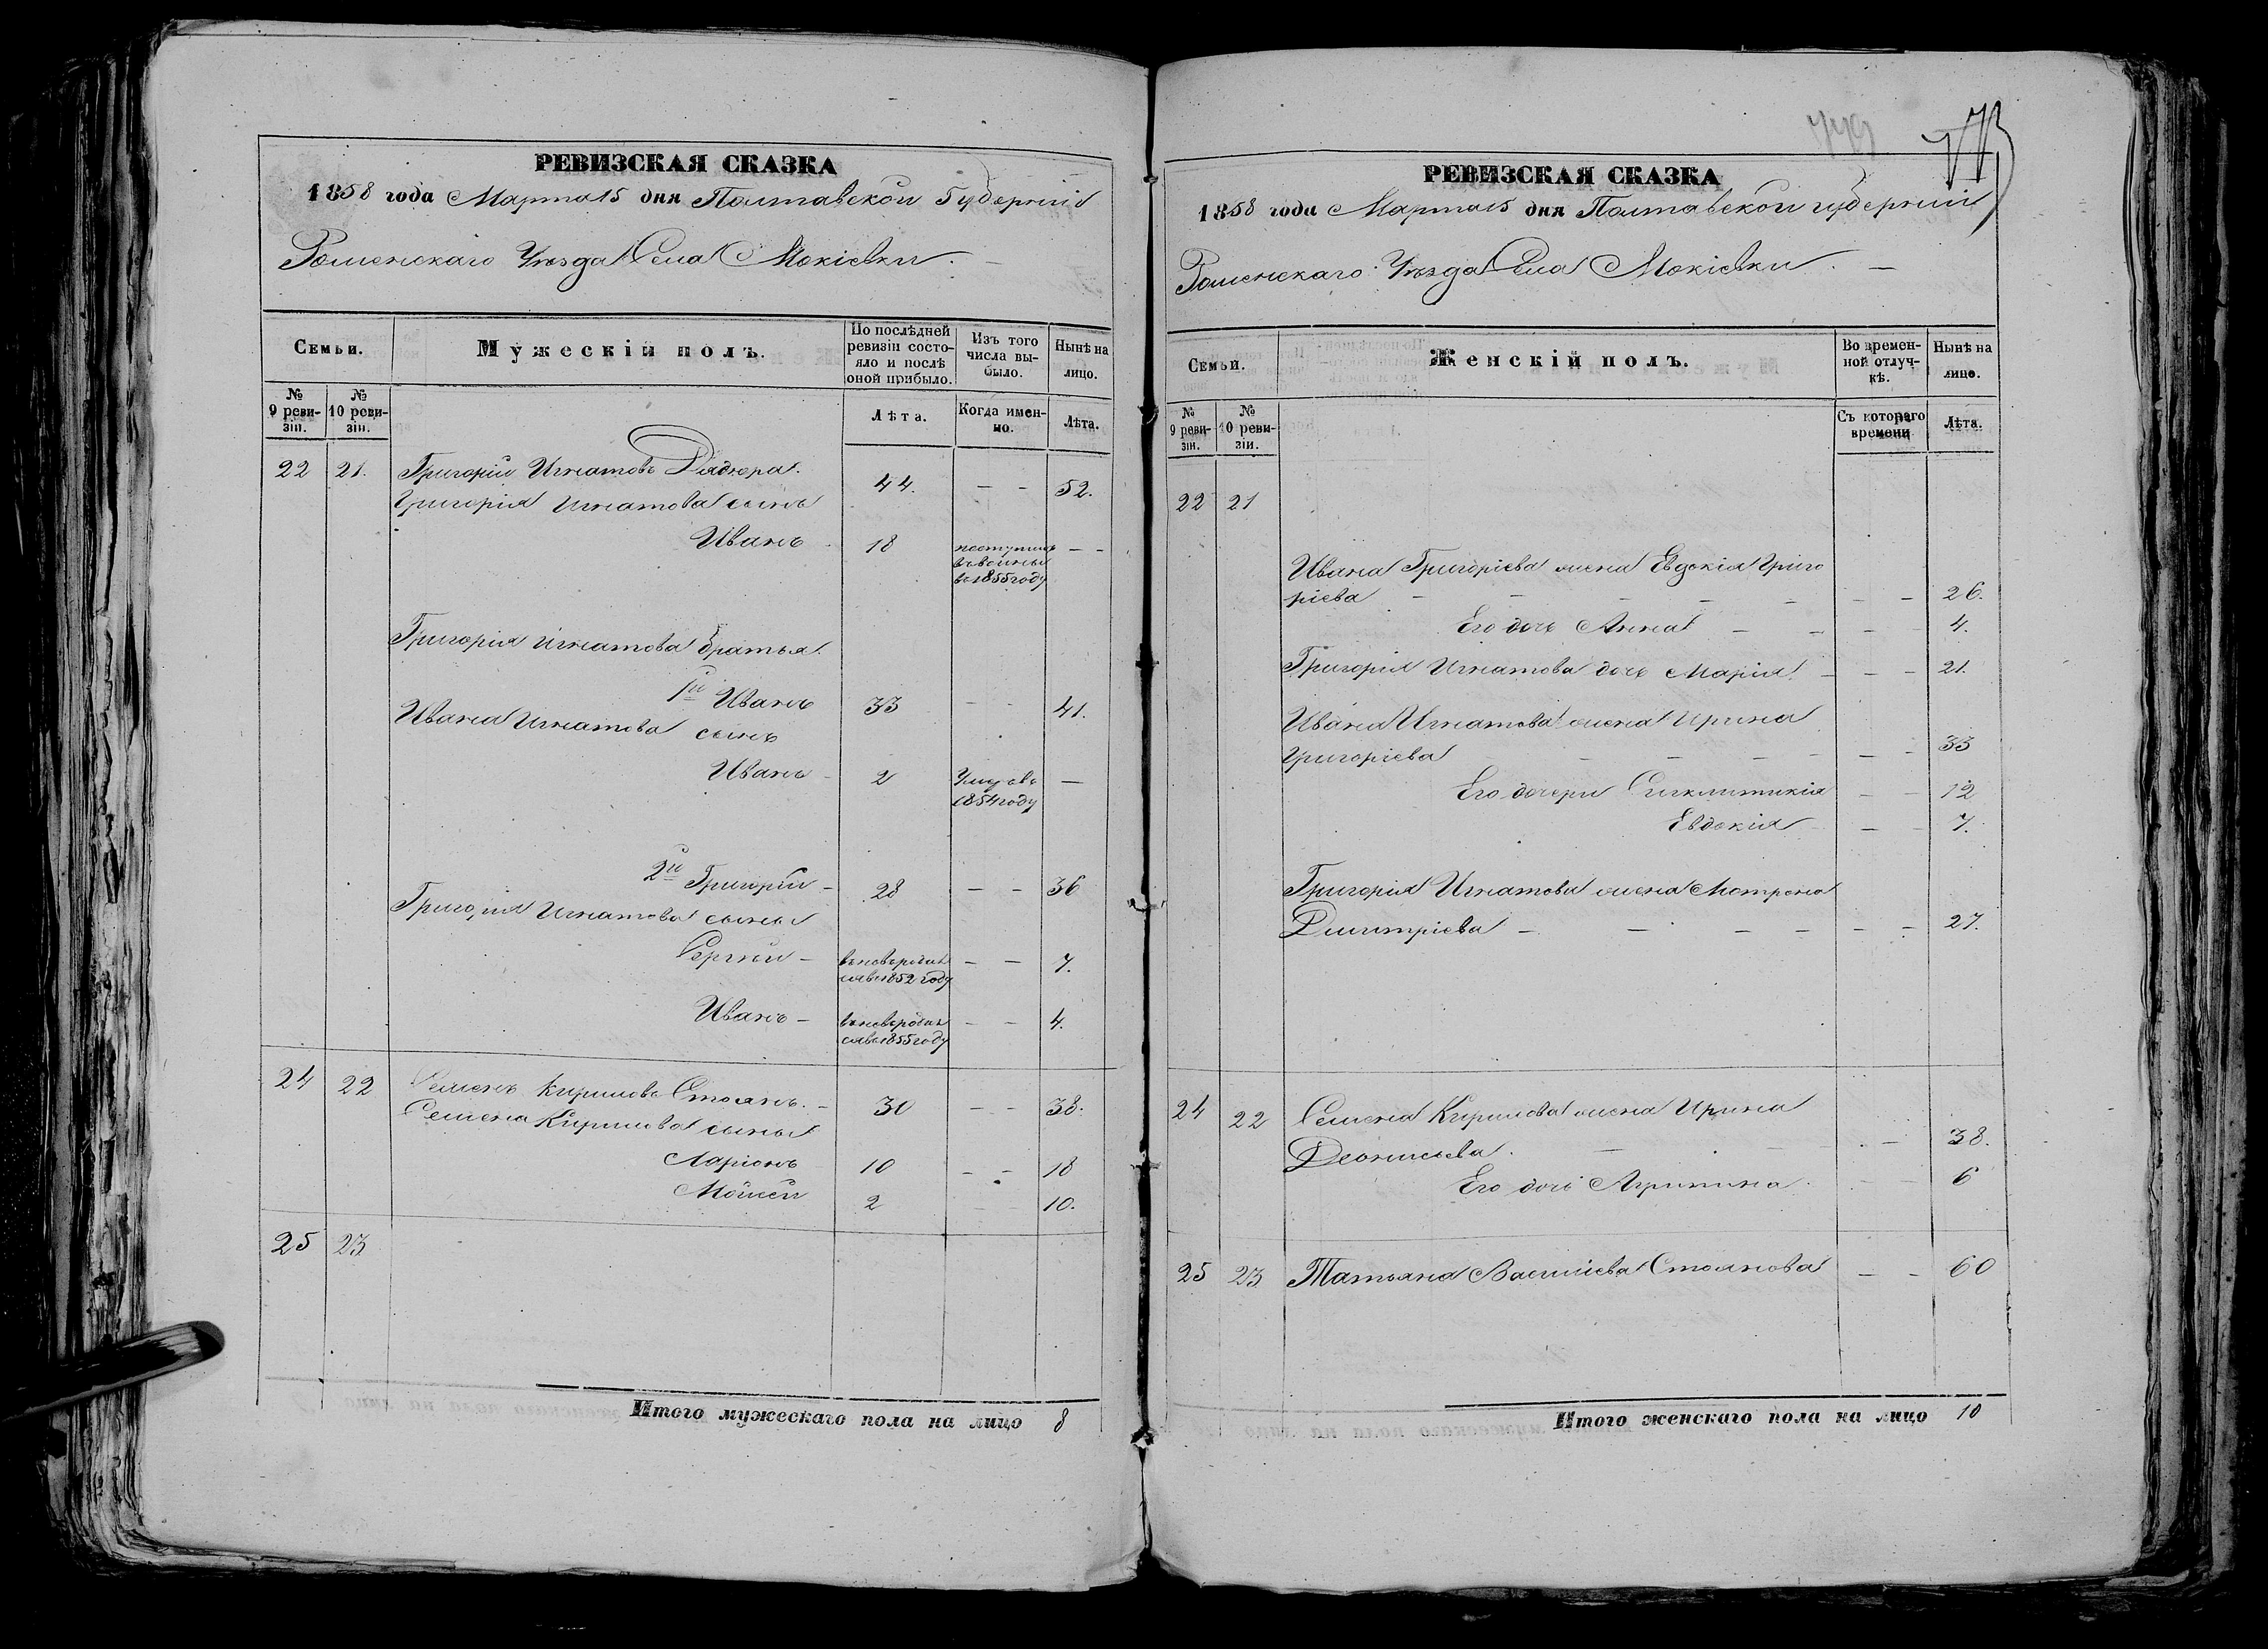 РЕВИЗСКАЯ СКАЗКА
1858 года Марта 15 дня Полтавской Губерніи
Роменскаго Уѣзда Села Мокіевки.
Семьи.
Мужескій полъ.
По послѣдней ревизіи состояло и послѣ оной прибыло.
Изъ того числа выбыло.
Нынѣ на лицо.
№ 9 ревизіи.
№ 10 ревизіи.
Лѣта.
Когда именно.
Лѣта.
22 21. Григорій Игнатовъ Дядюра. 44. - - 52.
Григорія Игнатова сынъ
Иванъ 18 поступилъ въ воины въ 1855 году - -
Григорія Игнатова братья.
1й Иванъ 33 - - 41.
Ивана Игнатова сынъ
Иванъ - 2 Умре въ 1854 году -
2й Григорій - 28 - - 36
Григорія Игнатова сыны
Сергѣй - вновь родился въ 1852 году - - 7.
Иванъ - вновь родился въ 1855 году - - 4.
24 22 Семенъ Кириловъ Стоянъ. - 30 - - 38.
Семена Кирилова сыны
Ларіонъ 10 - - 18
Мойсей 2 - - 10.
25 23
Итого мужескаго пола на лицо 8
РЕВИЗСКАЯ СКАЗКА
1858 года Марта 15 дня Полтавской губерніи
Роменскаго Уѣзда Села Мокіевки. -
Семьи.
Женскій полъ.
Во временной отлучкѣ.
Нынѣ на лицо.
№ 9 ревизіи.
№ 10 ревизіи.
Съ котораго времени
Лѣта.
22 21
Ивана Григоріева жена Евдокія Григо
ріева - - - - - - - 26.
Его дочь Анна - - - 4.
Григорія Игнатова дочь Марія - - - 21.
Ивана Игнатова жена Ирина
Григоріева - - - - - - 33
Его дочери Синклитикія - - 12
Евдокія - - 7.
Григорія Игнатова жена Мотрона
Димитріева - - - - - - 27.
24 22 Семена Кирилова жена Ирина
Деонисьева. - - - 38.
Его дочь Агрипина. - 6
25 23 Татьяна Васильева Стоянова - - 60
Итого женскаго пола на лицо 10